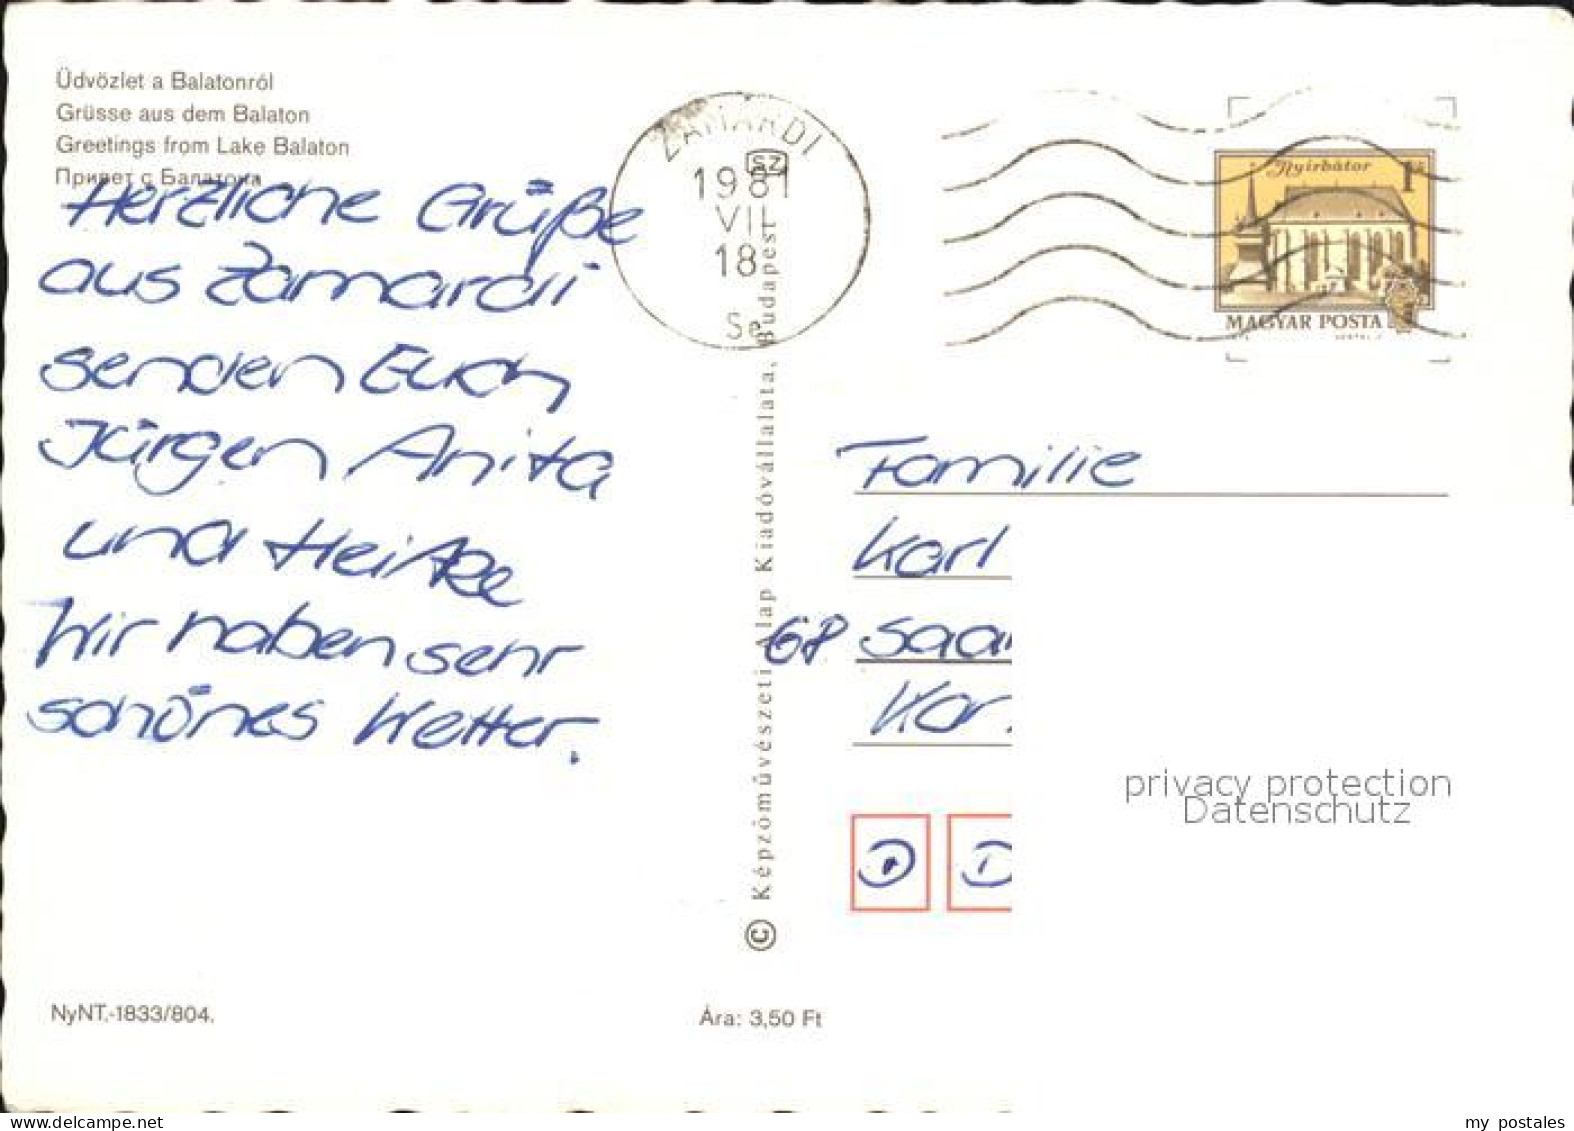 Üdvözlet a Balatonról
Grüsse aus dem Balaton
Greetings from Lake Balaton
Привет с Балатона
Herzliche Grüße
aus Zamardi
senden Euch
Jürgen Anita
und Heike
Wir haben sehr
schönes Wetter.
ZAMÁRDI
SZ
1981
VII
18
Se
Nyírbátor
1
MAGYAR POSTA
© Képzőművészeti Alap Kiadóvállalata, Budapest
Familie
Karl
68 Saar
Kar
D D
privacy protection
Datenschutz
NyNT.-1833/804.
Ára: 3,50 Ft
www.delcampe.net
my_postales